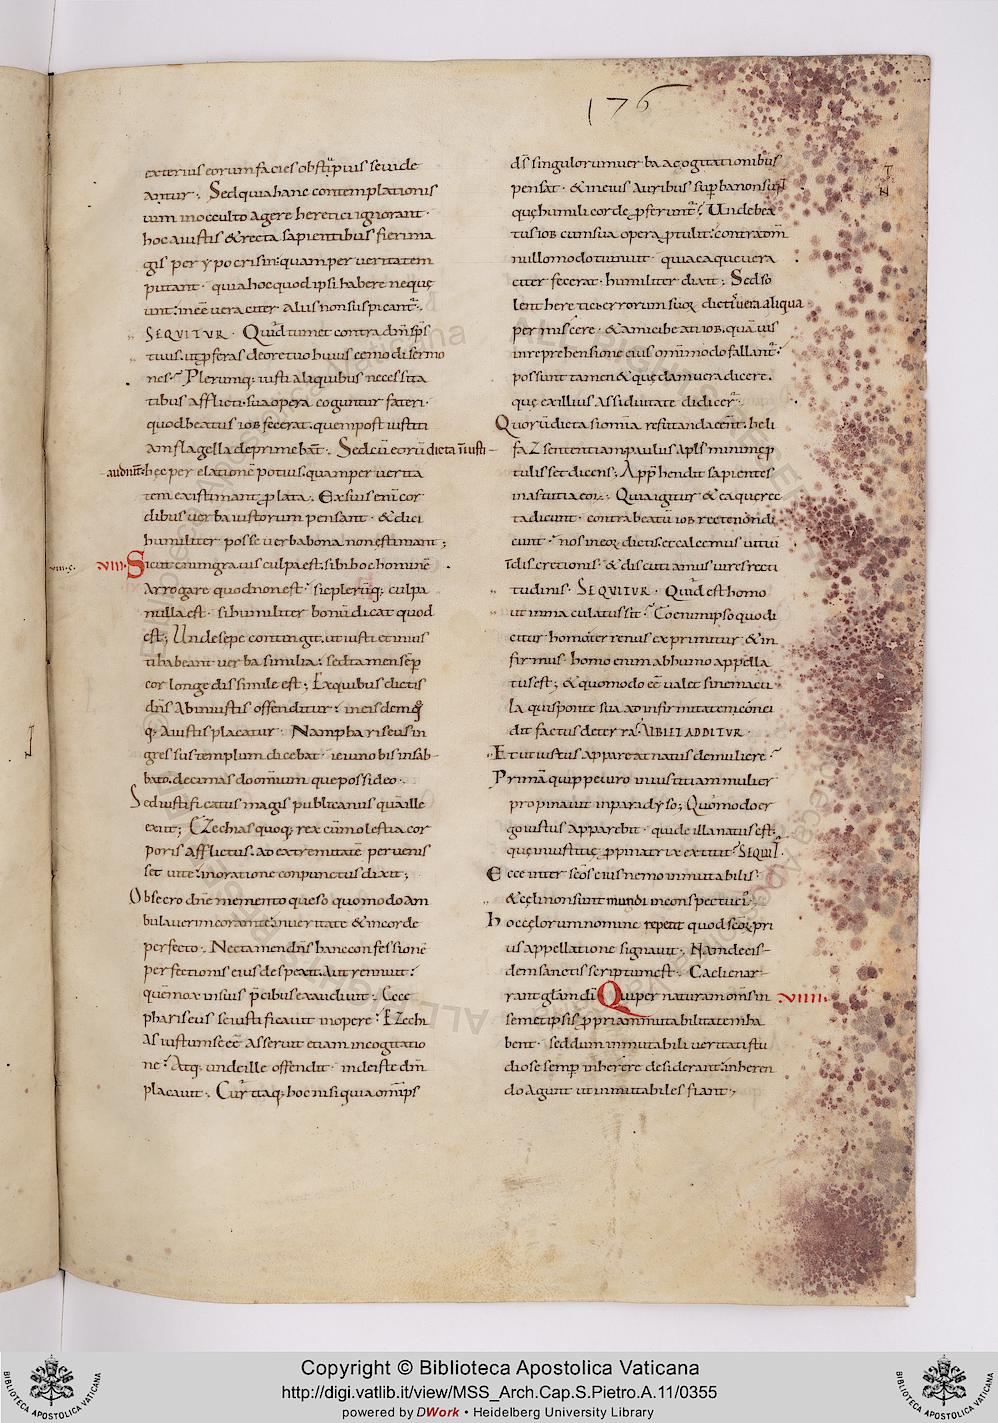 176
exterius eorum facies obstupuisse uide
antur. Sed quia hanc contemplationis
uim in occulto agere heretici ignorant.
hoc a iustis & recta sapientibus fieri ma
gis per ypocrisin: quam per ueritatem
putant. quia hoc quod ipsi habere nequeunt
inesse ueraciter aliis non suspicantur.
SEQUITUR. Quid tumet contra dm sps
tuus. ut pferas de ore tuo huiuscemodi sermo
nes. Plerumq; iusti aliquibus necessita
tibus afflicti. sua opera coguntur fateri.
quod beatus iob fecerat. quem post iustiti
am flagella deprimebant. Sed cu eoru dicta iniusti
audiunt. hec per elatione potius. quam per uerita
tem existimant plata. Ex suis eni cor
dibus uerba iustorum pensant. & dici
humiliter posse uerba bona non estimant;
VIIII. Sicut enim grauis culpa est. sibi hoc homine
arrogare quod non est. sic pleruq; culpa
nulla est. si humiliter bonu dicat quod
est; Unde sepe contingit. ut iusti et inius
ti habeant uerba similia. sed tamen semp
cor longe dissimile est; Ex quibus dictis
dns ab iniustis offenditur. in eisdem
q; a iustis placatur. Nam phariseus in
gressus templum dicebat. ieiuno bis in sab
bato. decimas do omnium que possideo.
Sed iustificatus magis publicanus qua ille
exiit; Ezechias quoq; rex cu molestia cor
poris afflictus. ad extremitate peruenis
set uite. in oratione conpunctus dixit;
Obsecro dne memento queso quomodo am
bulauerim coram te. in ueritate & in corde
perfecto. Nec tamen dns hanc confessione
perfectionis eius despexit. aut rennuit.
que mox in suis pcibus exaudiuit. Ecce
phariseus se iustificauit in opere. Ezechi
as iustum se esse asseruit etiam in cogitatio
ne. Atq; unde ille offendit. inde iste dm
placauit. Cur itaq; hoc nisi quia omps
ds singulorum uerba a cogitationibus
pensat. & in eius auribus supba non sunt
que humili corde pferuntur. Unde bea
tus iob cum sua opera ptulit. contra dm
nullo modo tumuit. quia ea que uera
citer fecerat. humiliter dixit. Sed so
lent heretici errorum suor dictis uera aliqua
permiscere. & amici beati iob. quamuis
in reprehensione eius omnimodo fallantur.
possunt tamen & quedam uera dicere.
que ex illius assiduitate didicer.
Quoru dicta si omnia refutanda essent. heli
faz sententiam paulus apls minime p
tulisset dicens. Apphendit sapientes
in astutia eor. Quia igitur & ea que rec
ta dicunt. contra beatu iob recte non di
cunt. nos in eor dictis. et calcemus uitiu
indiscretionis. & discutiamus uires recti
tudinis. SEQUITUR. Quid est homo
ut inmaculatus sit. Eo enim ipso quo di
citur homo terrenus exprimitur & in
firmus. homo enim ab humo appella
tus est; & quomodo esse ualet sine macu
la. qui sponte sua ad infirmitatem conci
dit factus de terra. ALIBI ET ADDITUR.
Et ut iustus appareat natus de muliere.
Prima quippe uiro iniustitiam mulier
propinauit in paradyso; Quomodo er
go iustus apparebit. qui de illa natus est.
que iniustitie ppinatrix extitit. SEQUIT.
Ecce inter scos eius nemo inmutabilis.
& celi non sunt mundi in conspectu ei.
Hoc celorum nomine repetit quod scor pri
us appellatione signauit. Nam de eis
dem sanctis scriptum est. Caeli enar
rant glam di. Qui per naturam oms in VIIII.
semetipsis ppriam mutabilitatem ha
bent. sed dum inmutabili ueritati stu
diose semp inherere desiderant. inheren
do agunt ut inmutabiles fiant;
Copyright © Biblioteca Apostolica Vaticana
http://digi.vatlib.it/view/MSS_Arch.Cap.S.Pietro.A.11/0355
powered by DWork • Heidelberg University Library
BIBLIOTECA APOSTOLICA VATICANA
BIBLIOTECA APOSTOLICA VATICANA